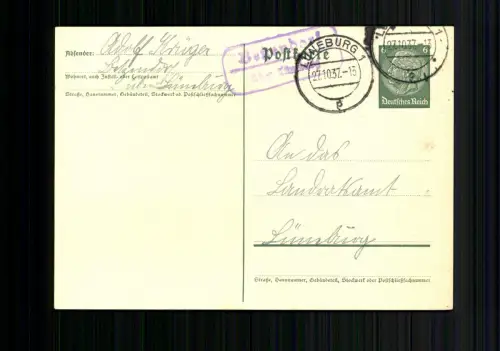 Absender: Adolf Krüger
Wohnort, auch Zustell- oder Leitpostamt
über Lüneburg
Straße, Hausnummer, Gebäudeteil, Stockwerk od. Postschließfachnummer
Postkarte
LÜNEBURG 1
27.10.37.-13
6
Deutsches Reich
An das
Landratsamt
Lüneburg
Straße, Hausnummer, Gebäudeteil, Stockwerk oder Postschließfachnummer